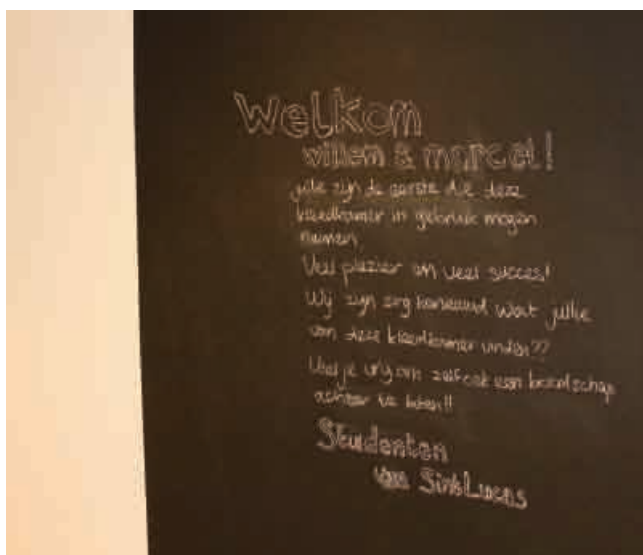 Welkom
willem & marcel!
jullie zijn de eerste die deze
kleedkamer in gebruik mogen
nemen.
Veel plezier en veel succes!
Wij zijn erg benieuwd wat jullie
van deze kleedkamer vinden??
Voel je vrij om zelf ook een boodschap
achter te laten!!
Studenten
van SintLucas